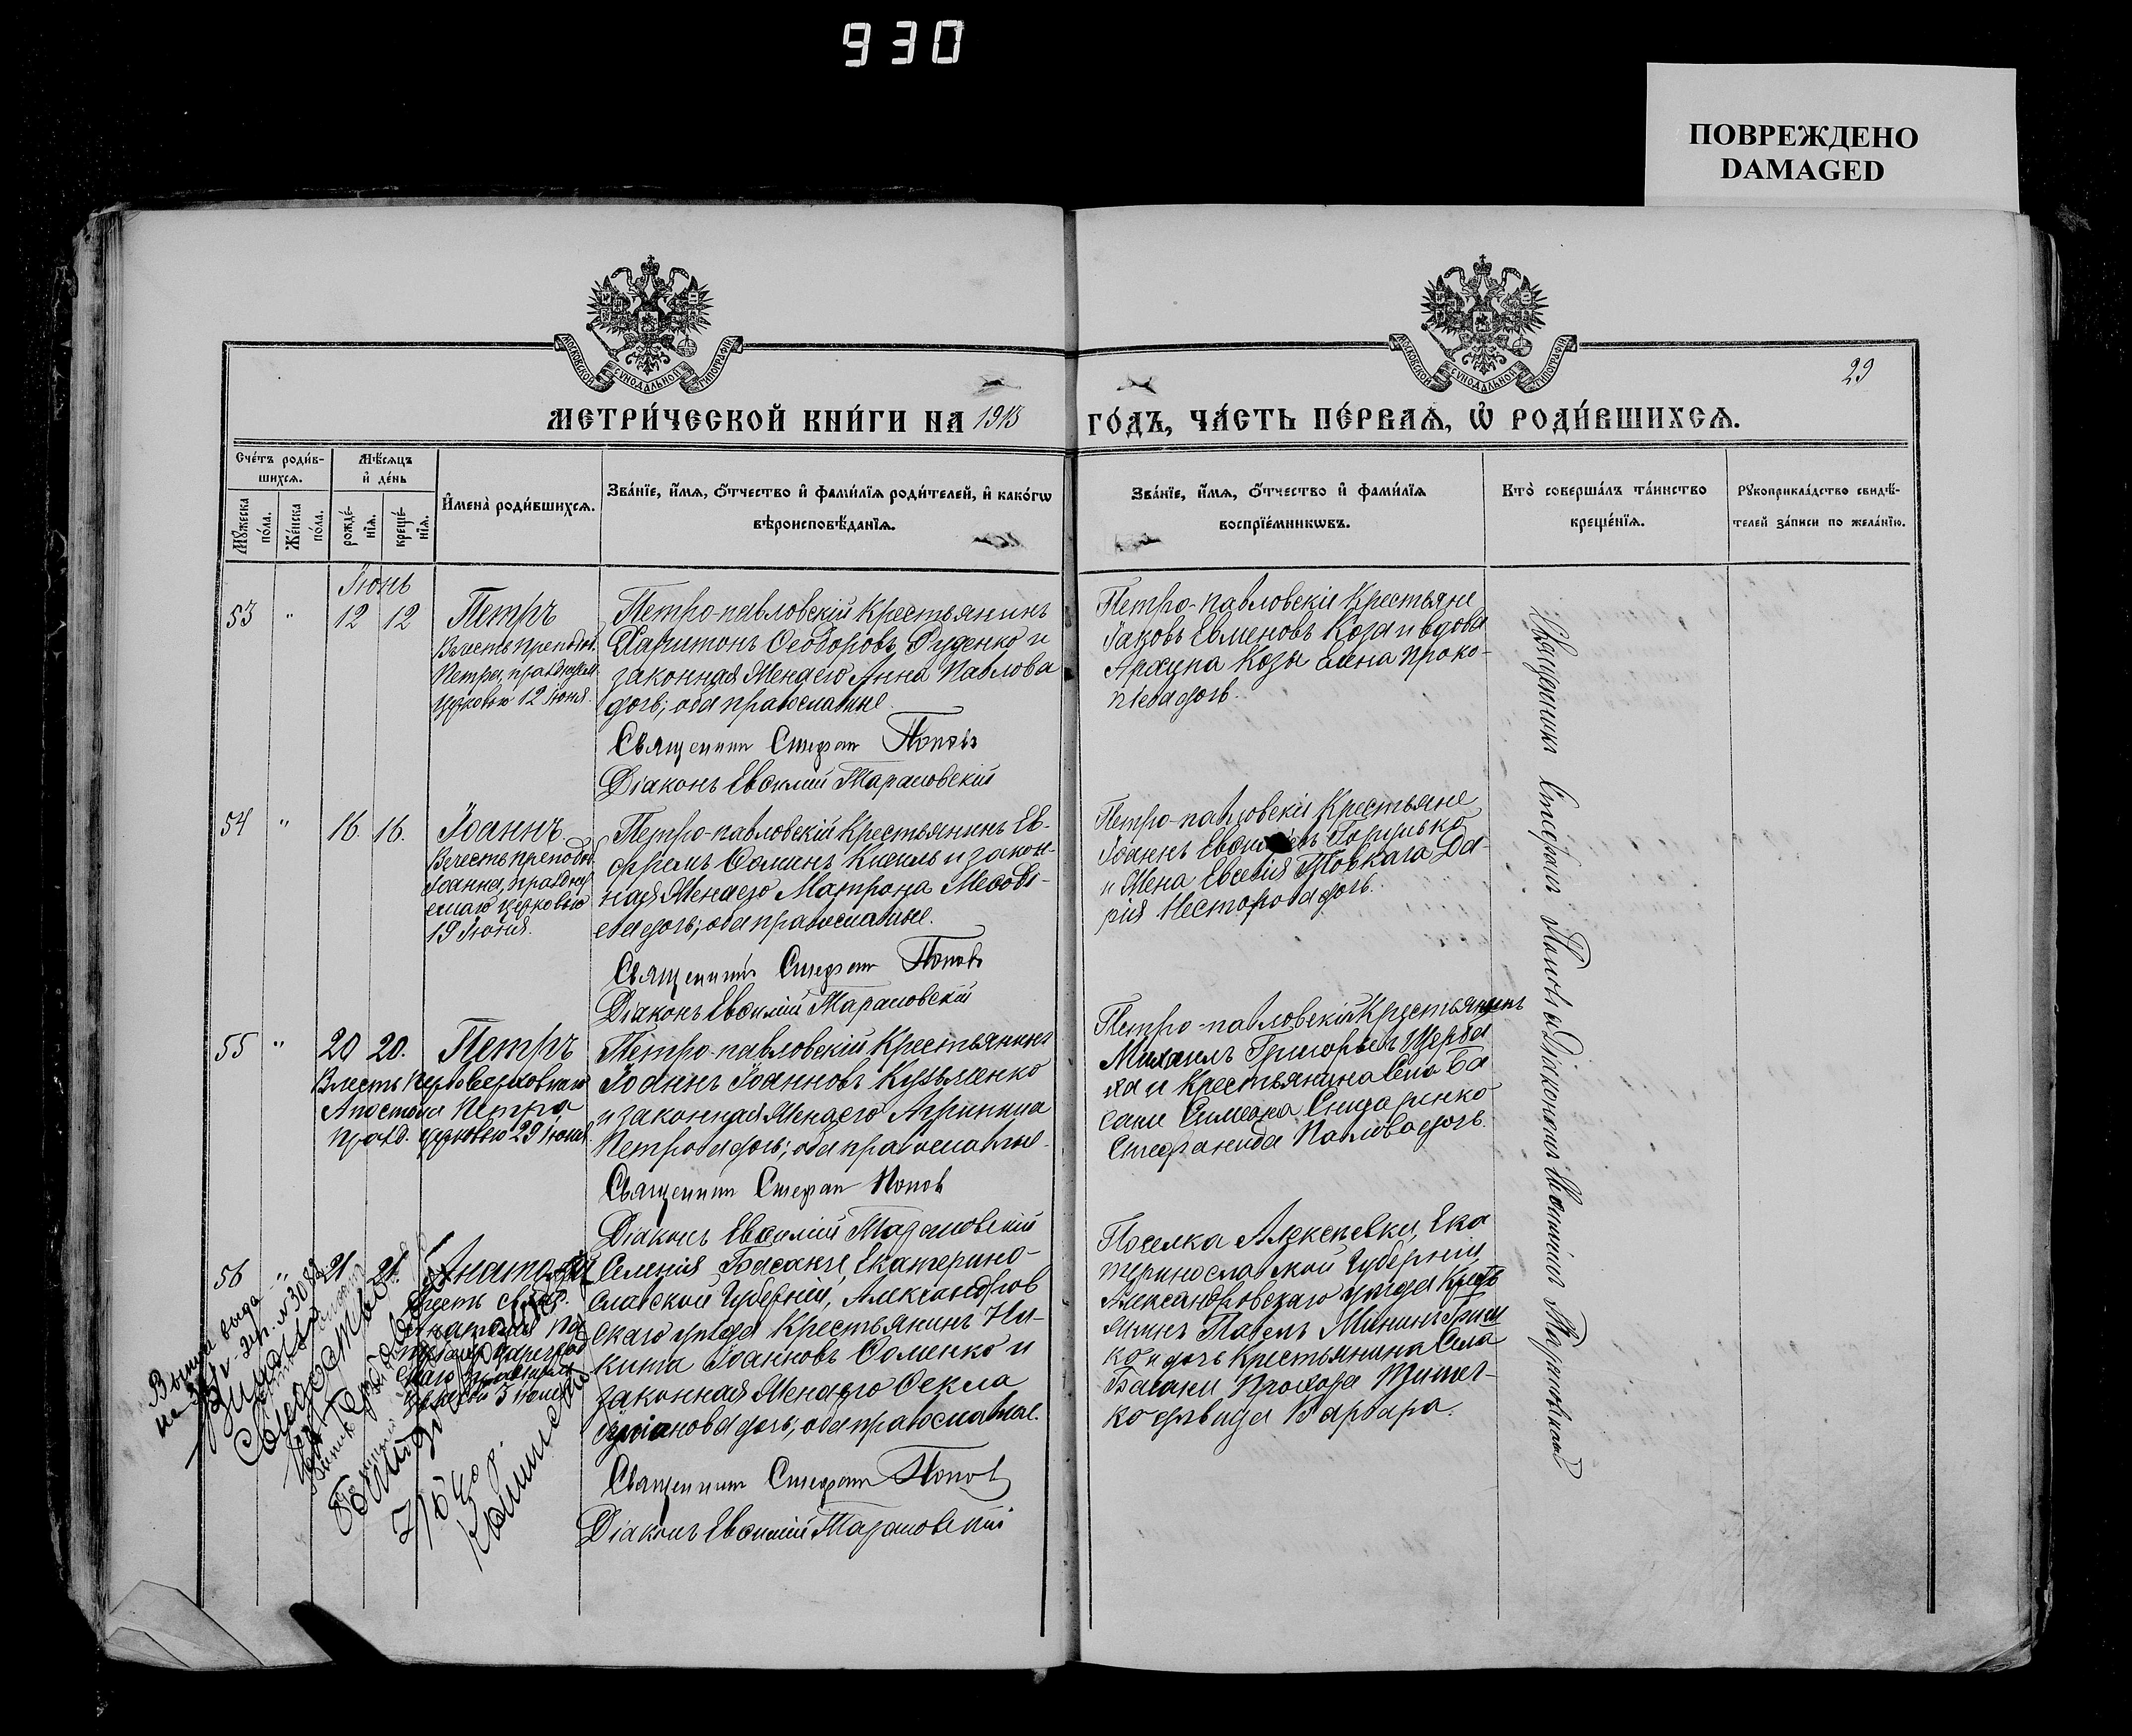 930
ПОВРЕЖДЕНО
DAMAGED
МОСКОВСКОЙ СѴНОДАЛЬНОЙ ТИПОГРАФІИ
МОСКОВСКОЙ СѴНОДАЛЬНОЙ ТИПОГРАФІИ
29
МЕТРИ́ЧЕСКОЙ КНИ́ГИ НА 1913
ГО́ДЪ, ЧА́СТЬ ПЕ́РВАѦ, Ѡ҆ РОДИ́ВШИХСѦ.
Сче́тъ роди́в-
шихсѧ.
Мꙋ́жеска по́ла.
Же́нска по́ла.
Мѣ́сѧцъ
и҆ де́нь
рожде́-
нїѧ.
креще́-
нїѧ.
И҆мена̀ роди́вшихсѧ.
Зва́нїе, и҆́мѧ, ѻ҆́тчество и҆ фами́лїѧ роди́телей, и҆ како́гѡ
вѣроисповѣ́данїѧ.
Зва́нїе, и҆́мѧ, ѻ҆́тчество и҆ фами́лїѧ
воспрїе́мникѡвъ.
Кто̀ соверша́лъ та́инство
креще́нїѧ.
Рꙋкоприкла́дство свидѣ́-
телей за́писи по жела́нїю.
Іюнь
53 " 12 12 Петръ
Въ честь Преподоб.
Петра, празднуем.
Церковью 12 Іюня.
Петро-павловскій Крестьянинъ
Харитонъ Ѳеодоровъ Руденко и
законная Жена его Анна Павлова
дочь; оба православные.
Священникъ Стефанъ Поповъ
Діаконъ Евѳимій Тарановскій
Петро-павловскіе Крестьяне
Іаковъ Евменовъ Коза и вдова
Архипа Козы Елена Проко-
піева дочь.
54 " 16. 16. Іоаннъ
Въ честь преподоб.
Іоанна, празднуе
емаго церковью
19 Іюня.
Петро-павловскій Крестьянинъ Ев-
фремъ Ѳоминъ Кисиль и закон-
ная Жена его Матрона Меѳоді-
ева дочь; оба православные.
Священникъ Стефанъ Поповъ
Діаконъ Евѳимій Тарановскій
Петро-павловскіе Крестьяне
Іоаннъ
и Жена Евсевія Товкача Да-
рія Несторова дочь.
55 " 20 20. Петръ
В честь Первоверховнаго
Апостола Петра
празд. церковью 29 Іюня.
Петро-павловскій Крестьянинъ
Іоаннъ Іоанновъ Кузьменко
и законная Жена его Агрипина
Петрова дочь; оба православные.
Священникъ Стефанъ Поповъ
Діаконъ Евѳимій Тарановскій
Петро-павловскій Крестьянинъ
Михаилъ Григорьевъ Щерба
ха и Крестьянина Села Ба
сани Симеона Снидаренко
Стефанида Павлова дочь.
56 " 21 21. Анатолій
Селенія Басани, Екатерино-
славской Губерніи, Александров
скаго уезда Крестьянинъ Ни-
кита Іоанновъ Ѳоменко и
законная Жена его Ѳекла
дочь, оба православные.
Священникъ Стефанъ Попов
Діаконъ Евѳимій Тарановскій
Поселка Алексеевки, Ека
теринославской Губерніи
Александровскаго уезда Кресть
янинъ Павелъ Мининъ Гриш
ко и дочь Крестьянина Села
Басани Прохора Тимот-
ко девица Варвара.
Священникъ Стефанъ Поповъ и Діаконъ Евѳимій Тарановскій